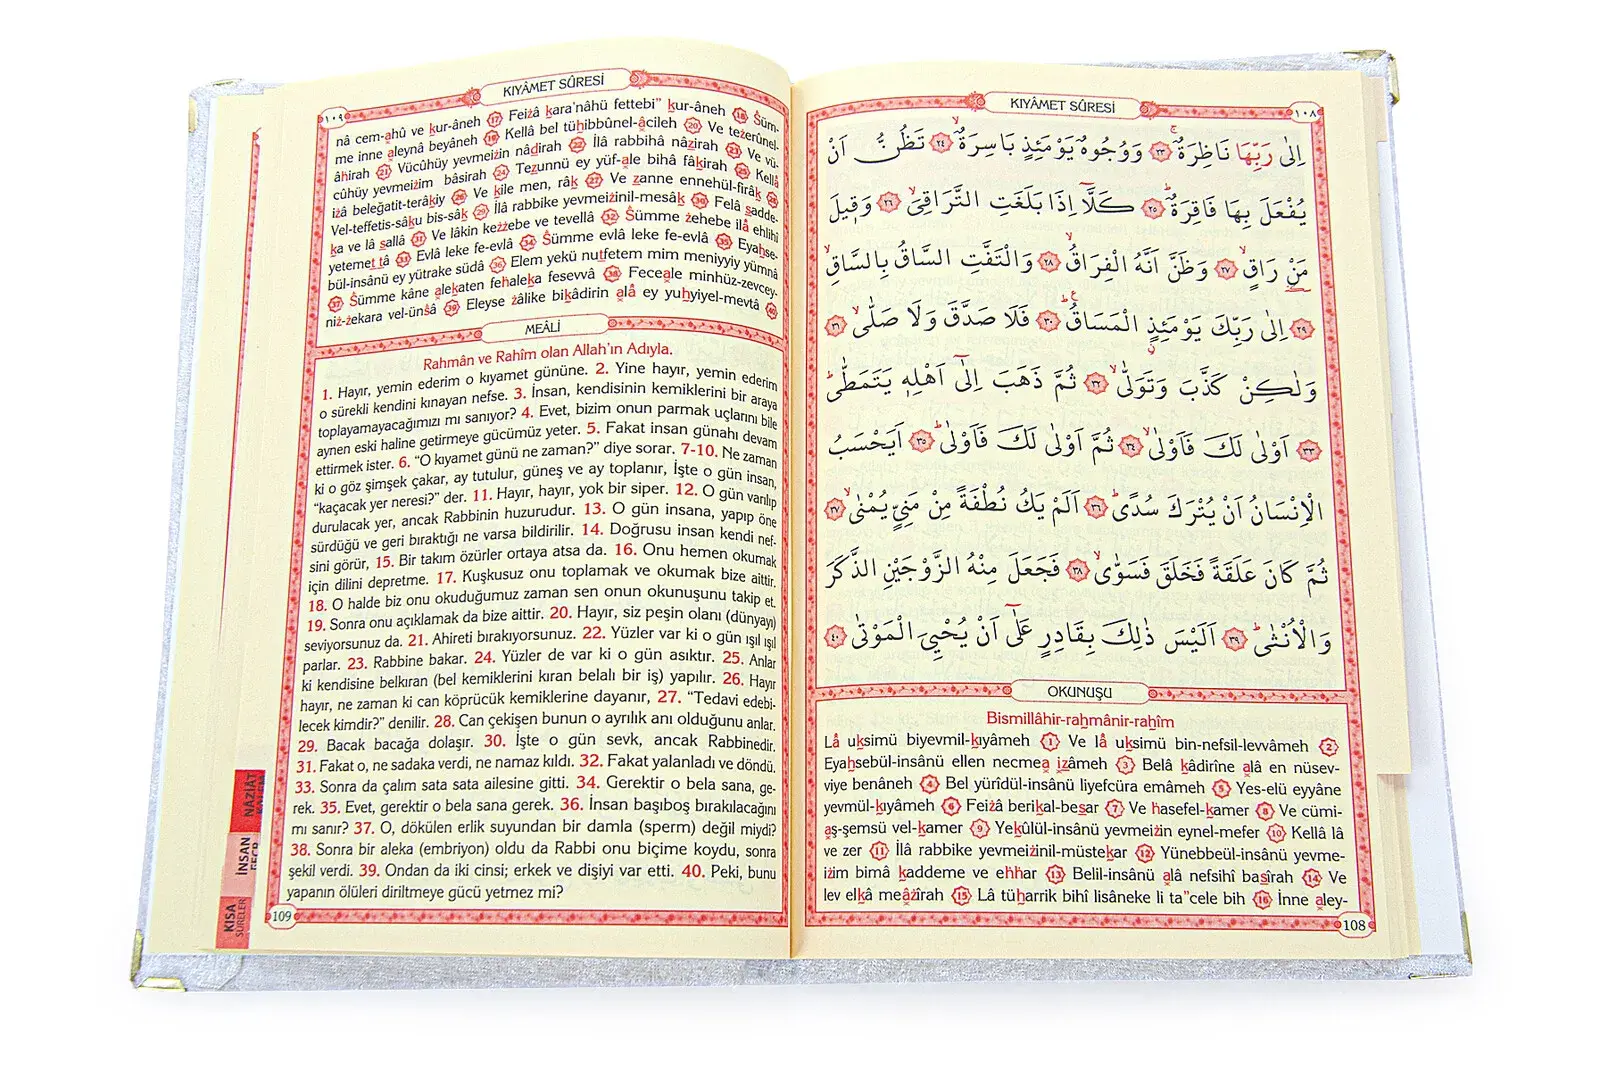 KIYÂMET SÛRESİ
١٠٨
اِلٰى رَبِّهَا نَاظِرَةٌۚ ﴿٢٣﴾ وَوُجُوهٌ يَوْمَئِذٍ بَاسِرَةٌۙ ﴿٢٤﴾ تَظُنُّ اَنْ
يُفْعَلَ بِهَا فَاقِرَةٌۜ ﴿٢٥﴾ كَلَّٓا اِذَا بَلَغَتِ التَّرَاقِيَۙ ﴿٢٦﴾ وَقٖيلَ
مَنْ رَاقٍۙ ﴿٢٧﴾ وَظَنَّ اَنَّهُ الْفِرَاقُۙ ﴿٢٨﴾ وَالْتَفَّتِ السَّاقُ بِالسَّاقِۙ
﴿٢٩﴾ اِلٰى رَبِّكَ يَوْمَئِذٍ الْمَسَاقُۜ ﴿٣٠﴾ فَلَا صَدَّقَ وَلَا صَلّٰىۙ ﴿٣١﴾
وَلٰكِنْ كَذَّبَ وَتَوَلّٰىۙ ﴿٣٢﴾ ثُمَّ ذَهَبَ اِلٰٓى اَهْلِهٖ يَتَمَطّٰىۜ
﴿٣٣﴾ اَوْلٰى لَكَ فَاَوْلٰىۙ ﴿٣٤﴾ ثُمَّ اَوْلٰى لَكَ فَاَوْلٰىۜ ﴿٣٥﴾ اَيَحْسَبُ
الْاِنْسَانُ اَنْ يُتْرَكَ سُدًىۜ ﴿٣٦﴾ اَلَمْ يَكُ نُطْفَةً مِنْ مَنِيٍّ يُمْنٰىۙ ﴿٣٧﴾
ثُمَّ كَانَ عَلَقَةً فَخَلَقَ فَسَوّٰىۙ ﴿٣٨﴾ فَجَعَلَ مِنْهُ الزَّوْجَيْنِ الذَّكَرَ
وَالْاُنْثٰىۜ ﴿٣٩﴾ اَلَيْسَ ذٰلِكَ بِقَادِرٍ عَلٰٓى اَنْ يُحْيِيَ الْمَوْتٰى ﴿٤٠﴾
OKUNUŞU
Bismillâhir-rahmânir-rahîm
Lâ uksimü biyevmil-kıyâmeh 1 Ve lâ uksimü bin-nefsil-levvâmeh 2
Eyahsebül-insânü ellen necmea ızâmeh 3 Belâ kâdirîne alâ en nüsev-
viye benâneh 4 Bel yürîdül-insânü liyefcüra emâmeh 5 Yes-elü eyyâne
yevmül-kıyâmeh 6 Feizâ berikal-besar 7 Ve hasefel-kamer 8 Ve cümi-
aş-şemsü vel-kamer 9 Yekûlül-insânü yevmeizin eynel-mefer 10 Kellâ lâ
ve zer 11 İlâ rabbike yevmeizinil-müstekar 12 Yünebbeül-insânü yevme-
izim bimâ kaddeme ve ehhar 13 Belil-insânü alâ nefsihî basîrah 14 Ve
lev elkâ meâzîrah 15 Lâ tüharrik bihî lisâneke li ta"cele bih 16 İnne aley-
108
KIYÂMET SÛRESİ
١٠٩
nâ cem-ahû ve kur-âneh 17 Feizâ kara'nâhü fettebi" kur-âneh 18 Süm-
me inne aleynâ beyâneh 19 Kellâ bel tühibbûnel-âcileh 20 Ve tezerûnel-
âhirah 21 Vücûhüy yevmeizin nâdirah 22 İlâ rabbihâ nâzirah 23 Ve vü-
cûhüy yevmeizim bâsirah 24 Tezunnü ey yüf-ale bihâ fâkirah 25 Kellâ
izâ beleğatit-terâkiy 26 Ve kîle men, râk 27 Ve zanne ennehül-firâk 28
Vel-teffetis-sâku bis-sâk 29 İlâ rabbike yevmeizinil-mesâk 30 Felâ sadde-
ka ve lâ sallâ 31 Ve lâkin kezzebe ve tevellâ 32 Sümme zehebe ilâ ehlihî
yetemettâ 33 Evlâ leke fe-evlâ 34 Sümme evlâ leke fe-evlâ 35 Eyahse-
bül-insânü ey yütrake südâ 36 Elem yekü nutfetem mim meniyyiy yümnâ
37 Sümme kâne alekaten fehaleka fesevvâ 38 Feceale minhüz-zevcey-
niz-zekara vel-ünsâ 39 Eleyse zâlike bikâdirin alâ ey yuhyiyel-mevtâ 40
MEÂLİ
Rahmân ve Rahîm olan Allah'ın Adıyla.
1. Hayır, yemin ederim o kıyamet gününe. 2. Yine hayır, yemin ederim
o sürekli kendini kınayan nefse. 3. İnsan, kendisinin kemiklerini bir araya
toplayamayacağımızı mı sanıyor? 4. Evet, bizim onun parmak uçlarını bile
aynen eski haline getirmeye gücümüz yeter. 5. Fakat insan günahı devam
ettirmek ister. 6. "O kıyamet günü ne zaman?" diye sorar. 7-10. Ne zaman
ki o göz şimşek çakar, ay tutulur, güneş ve ay toplanır, İşte o gün insan,
"kaçacak yer neresi?" der. 11. Hayır, hayır, yok bir siper. 12. O gün varılıp
durulacak yer, ancak Rabbinin huzurudur. 13. O gün insana, yapıp öne
sürdüğü ve geri bıraktığı ne varsa bildirilir. 14. Doğrusu insan kendi nef-
sini görür, 15. Bir takım özürler ortaya atsa da. 16. Onu hemen okumak
için dilini depretme. 17. Kuşkusuz onu toplamak ve okumak bize aittir.
18. O halde biz onu okuduğumuz zaman sen onun okunuşunu takip et.
19. Sonra onu açıklamak da bize aittir. 20. Hayır, siz peşin olanı (dünyayı)
seviyorsunuz da. 21. Ahireti bırakıyorsunuz. 22. Yüzler var ki o gün ışıl ışıl
parlar. 23. Rabbine bakar. 24. Yüzler de var ki o gün asıktır. 25. Anlar
ki kendisine belkıran (bel kemiklerini kıran belalı bir iş) yapılır. 26. Hayır
hayır, ne zaman ki can köprücük kemiklerine dayanır, 27. "Tedavi edebi-
lecek kimdir?" denilir. 28. Can çekişen bunun o ayrılık anı olduğunu anlar.
29. Bacak bacağa dolaşır. 30. İşte o gün sevk, ancak Rabbinedir.
31. Fakat o, ne sadaka verdi, ne namaz kıldı. 32. Fakat yalanladı ve döndü.
33. Sonra da çalım sata sata ailesine gitti. 34. Gerektir o bela sana, ge-
rek. 35. Evet, gerektir o bela sana gerek. 36. İnsan başıboş bırakılacağını
mı sanır? 37. O, dökülen erlik suyundan bir damla (sperm) değil miydi?
38. Sonra bir aleka (embriyon) oldu da Rabbi onu biçime koydu, sonra
şekil verdi. 39. Ondan da iki cinsi; erkek ve dişiyi var etti. 40. Peki, bunu
yapanın ölüleri diriltmeye gücü yetmez mi?
109
NAZİAT
İNSAN
KISA
SÛRELER